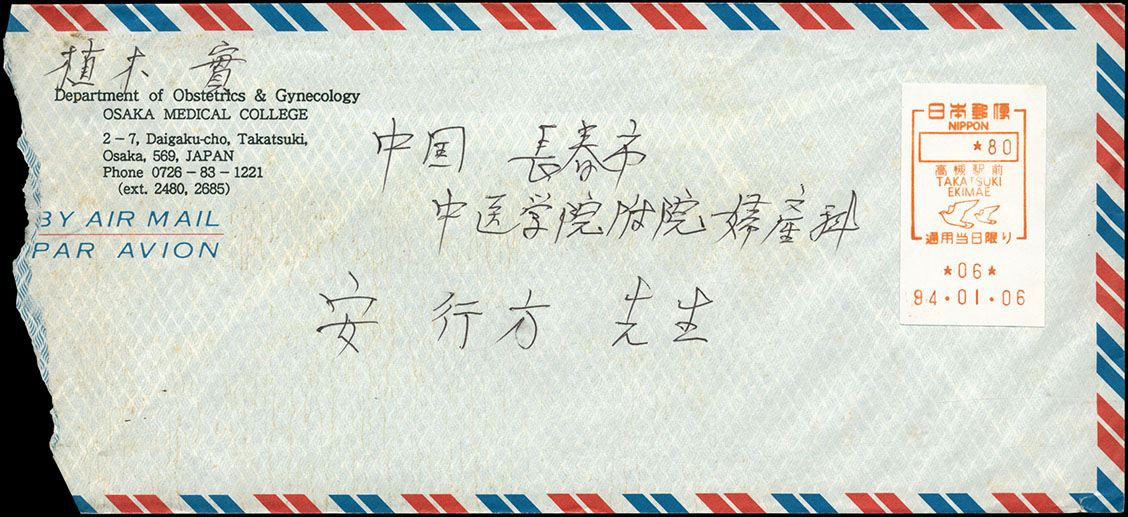 植木 實
Department of Obstetrics & Gynecology
OSAKA MEDICAL COLLEGE
2-7, Daigaku-cho, Takatsuki,
Osaka, 569, JAPAN
Phone 0726-83-1221
(ext. 2480, 2685)
BY AIR MAIL
PAR AVION
中国 長春市
中医学院附院婦産科
安 行方 先生
日本郵便
NIPPON
*80
高槻駅前
TAKATSUKI
EKIMAE
通用当日限り
*06*
84·01·06